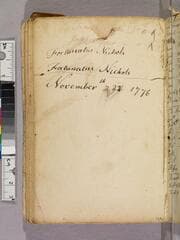 Fortunatus Nichols
Fortunatus Nichols
November 1776